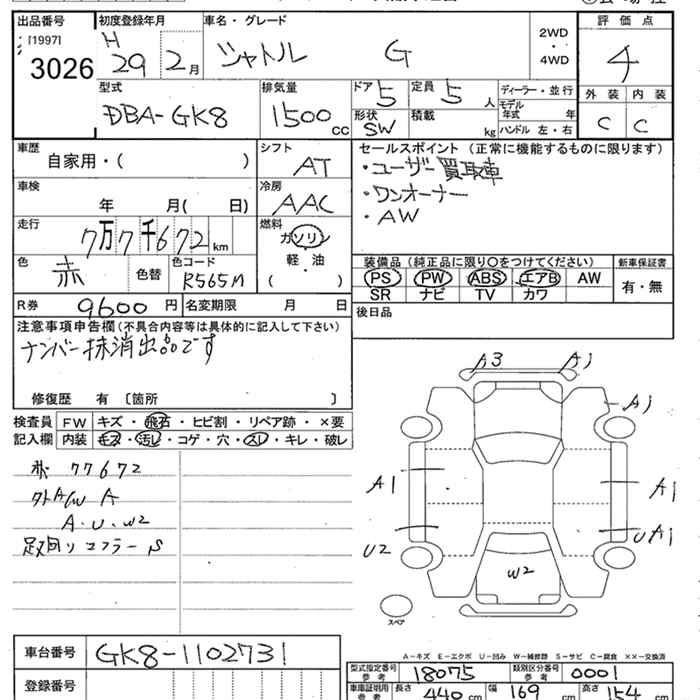 出品番号 初度登録年月 車名・グレード 評価点
[1997] H
3026 29 2月 シャトル G 2WD・4WD 4
型式 排気量 ドア 5 定員 5人 ディーラー・並行 外装 内装
DBA-GK8 1500cc 形状 SW 積載 kg モデル年式 年 ハンドル 左・右 C C
車歴 シフト セールスポイント (正常に機能するものに限ります)
自家用・( ) AT ・ユーザー買取車
車検 冷房 ・ワンオーナー
年 月( 日) AAC ・AW
走行 燃料
7万7千672km ガソリン
色 色替 色コード 軽・油 装備品(純正品に限り○をつけてください) 新車保証書
赤 R565M ( ) PS PW ABS エアB AW 有・無
R券 9600円 名変期限 月 日 SR ナビ TV カワ
注意事項申告欄(不具合内容等は具体的に記入して下さい) 後日品
ナンバー抹消出品です
修復歴 有 〔箇所 〕
検査員 FW キズ・飛石・ヒビ割・リペア跡・×要
記入欄 内装 キズ・汚レ・コゲ・穴・スレ・キレ・破レ
A3 A1
A1
赤 77672
外AW A
A・U・W2
足回りコフラーS
A1 A1
U2 UA1
W2
スペア
A-キズ E-エクボ U-凹み W-補修跡 S-サビ C-腐食 ××-交換済
車台番号 GK8-1102731
登録番号
型式指定番号 参考 18075 類別区分番号 参考 0001
車庫証明用 参考 長さ 440cm 幅 169cm 高さ 154cm